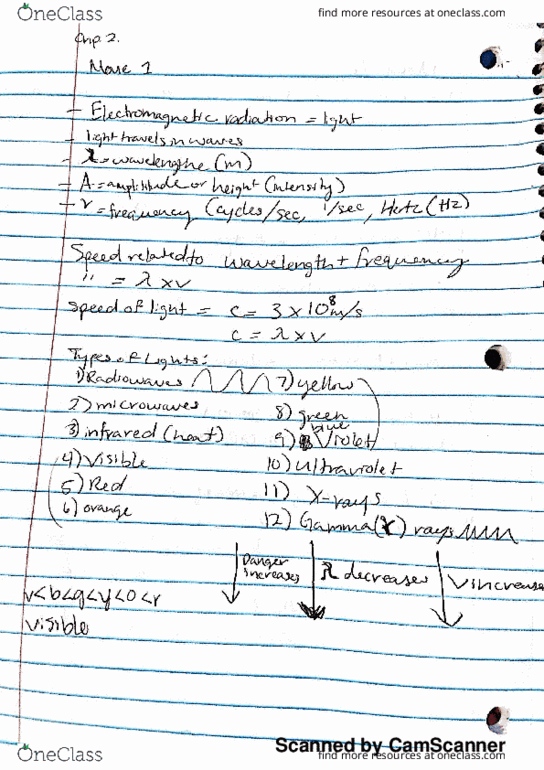 OneClass
find more resources at oneclass.com
Chp 2.
Move 1
- Electromagnetic radiation = light
- light travels in waves
- λ = wavelengthe (m)
- A = amplititude or height (intensity)
- v = frequency (cycles/sec, 1/sec, Hertz (Hz)
Speed related to wavelength + frequency
" = λ x v
Speed of light = c = 3 x 10⁸ m/s
c = λ x v
Types of Lights:
1) Radiowaves
2) microwaves
3) infrared (heat)
4) Visible
5) Red
6) orange
7) yellow
8) green
blue
9) Violet
10) Ultraviolet
11) X-rays
12) Gamma (γ) rays
Danger increases
λ decreases
V increase
v<b<g<y<o<r
visible
Scanned by CamScanner
OneClass
find more resources at oneclass.com